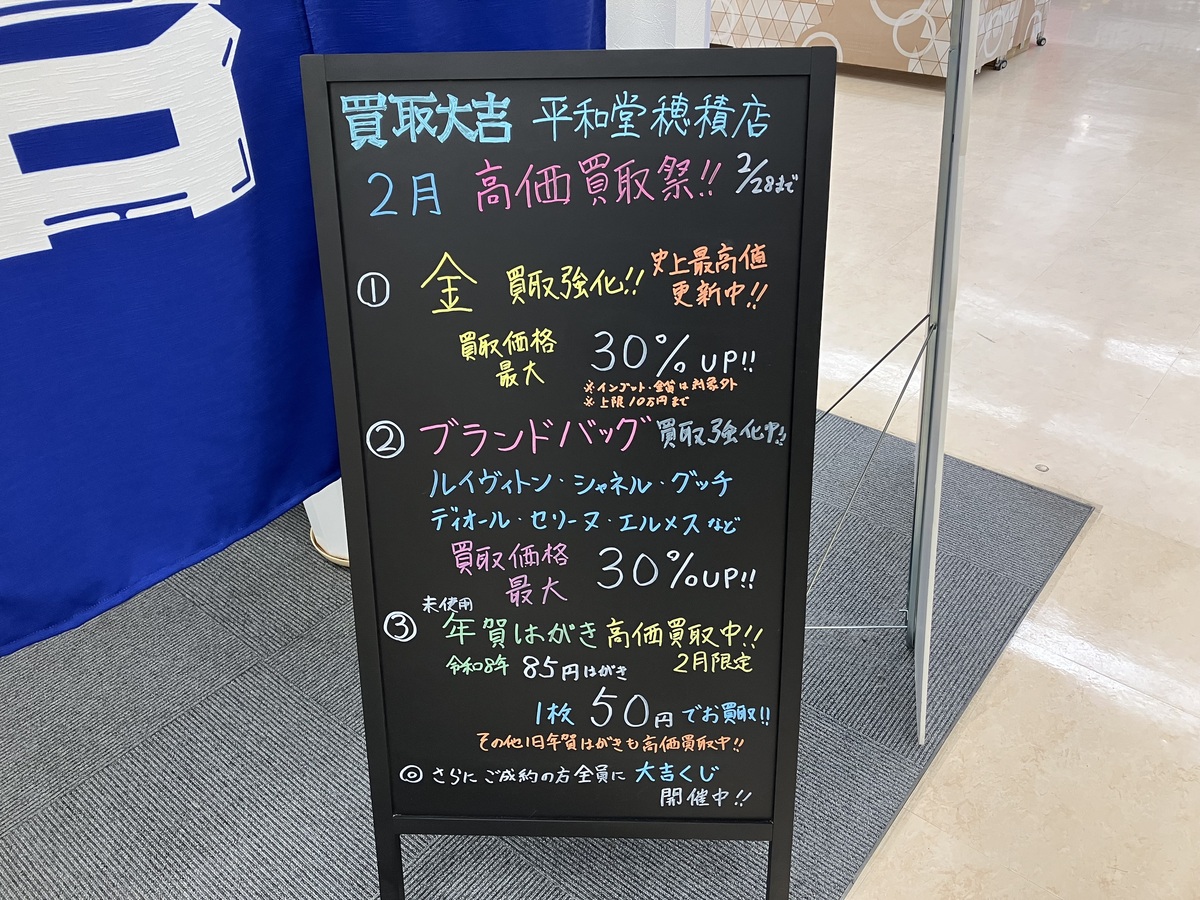 買取大吉 平和堂穂積店
2月 高価買取祭!! 2/28まで
① 金 買取強化!! 史上最高値
更新中!!
買取価格
最大 30% UP!!
※インゴット・金貨は対象外
※上限10万円まで
② ブランドバッグ 買取強化中!!
ルイヴィトン・シャネル・グッチ
ディオール・セリーヌ・エルメスなど
買取価格
最大 30% UP!!
未使用
③ 年賀はがき高価買取中!!
令和8年 85円はがき 2月限定
1枚 50円でお買取!!
その他旧年賀はがきも高価買取中!!
◎さらにご成約の方全員に 大吉くじ
開催中!!